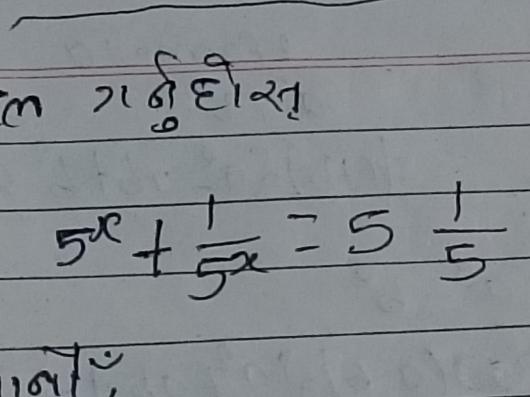 गर्नुहोस्
5^x + 1/5^x = 5 1/5